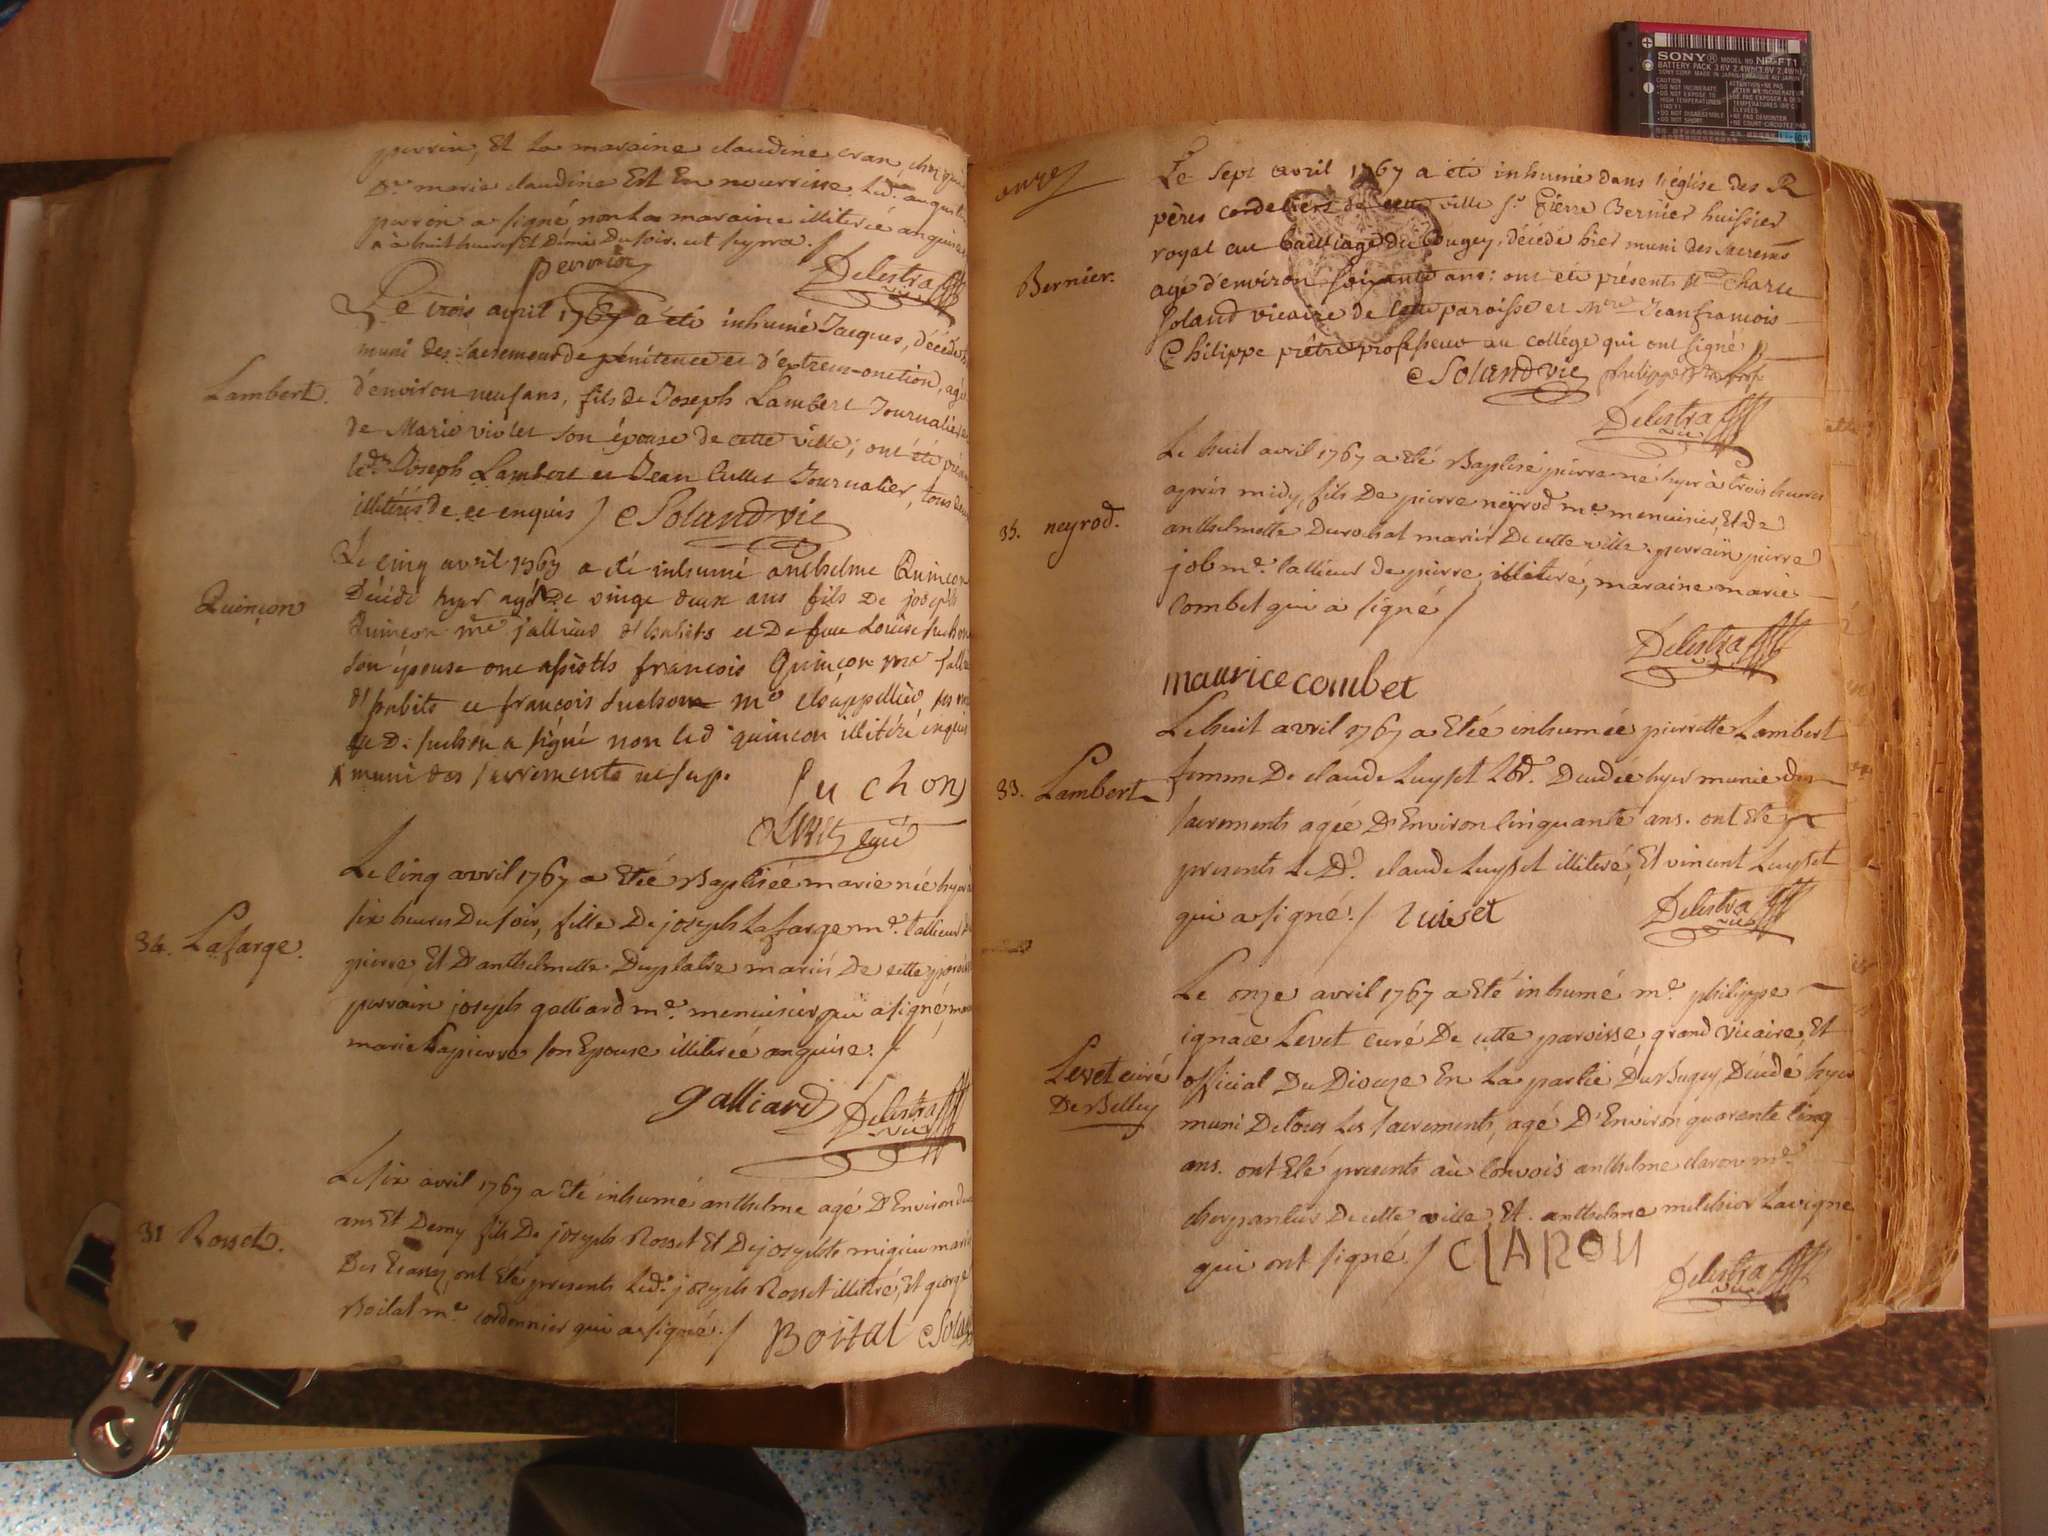 perrin, Et La maraine claudine cran, chez qui
marie claudine Est En nourrisse Led.
perron a signé non La maraine illiterée anquise
à huit heures Et Demie Du soir. ut supra. /
perrin
Delestra vic
Le trois avril 1767 a été inhumé Jacques, décédé
muni des sacremens de pénitence et d'extreme-onction, agé
Lambert.
d'environ neuf ans, fils de Joseph Lambert Journalier et
de Marie violet son épouse de cette ville; ont été
led. Joseph Lambert et Jean Cullet Journalier, tous deux
illitérés de ce enquis / Soland vic
Le cinq avril 1767 a été inhumé anthelme Quinçon
Quinçon
Décédé hyer agé De vingt deux ans fils De joseph
Quinçon me tallieur d'habits et De feue Louise suchon
son épouse ont assistés françois Quinçon me talli
d'habits et françois suchon me chappellier,
D. suchon a signé non led quinçon illitéré enquis
muni des sacrements ut sup.
Suchon
curé
Le cinq avril 1767 a Eteé Baptisée marie née hyer à
six heures Du soir, fille De joseph Lafarge me. tallieur de
34. Lafarge.
pierre Et D'anthelmette Duplatre mariés De cette paroisse
parrain joseph galliard me. menuisier, qui a signé,
marie Lapierre son Epouse illiterée anquise. /
galliard Delestra vic
Le six avril 1767 a Eté inhumé anthelme agé D'Environ deux
31 Rosset.
ans Et Demy fils De joseph Rosset Et De josephte migieu mariés
Des Ecassaz, ont Eté presents Led. joseph Rosset illiteré, Et george
Boital me cordonnier qui a signé. / Boital Soland
onze
Le sept avril 1767 a été inhumé dans l'église des R
pères cordeliers de cette ville sr. Pierre Bernier huissier
royal au bailliage du Bugey, décédé hier muni des sacremens
Bernier.
agé d'environ soixante ans: ont été présents Charle
Soland vicaire de cette paroisse et Jean françois
Philippe prêtre professeur au collége qui ont signé
Soland vic philippe
Delestra vic
Le huit avril 1767 a Eté Baptisé pierre né hyer à trois heures
après midy, fils De pierre neyrod me. menuisier, Et de
35. neyrod.
anthelmette Durochat mariés De cette ville. parrain pierre
job me. tallieur de pierre, illiteré, maraine marie
Combet qui a signé /
Delestra vic
maurice combet
Le huit avril 1767 a Eteé inhumée pierrette Lambert
33. Lambert
femme De claude Luyset Lbd. Decedée hyer munie des
sacrements ageé D'Environ Cinquante ans. ont Eté
presents Le D. claude Luyset illiteré, Et vincent Luyset
qui a signé. / Luiset
Delestra vic
Le onze avril 1767 a Eté inhumé me. philippe
ignace Levet curé De cette paroisse grand vicaire, Et
Levet curé
De Belley
official Du Dioceze En La partie Du Bugey, Décédé hyer
muni De tous Les sacrements, agé D'Environ quarente Cinq
ans. ont Eté presents au Convois anthelme claron me.
charpantier De cette ville, Et anthelme melchior Lavigne
qui ont signé. / CLARON
Delestra vic
SONY® MODEL NO. NP-FT1
BATTERY PACK 3.6V 2.4WH